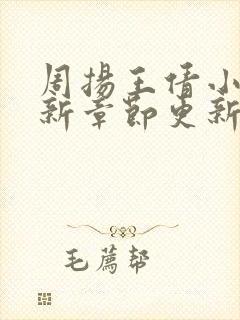 周揚王倩小
新章節更新
毛薦幫